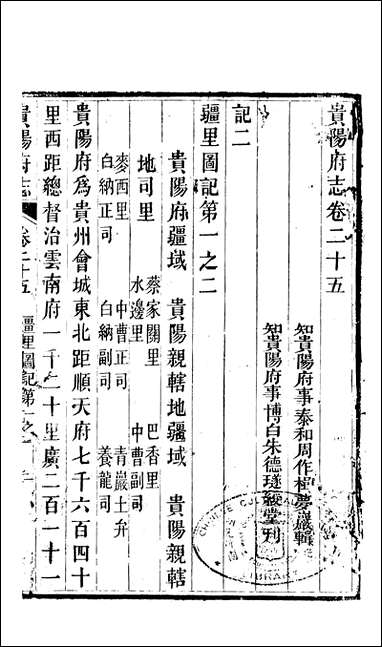 貴陽府志卷二十五
知貴陽府事泰和周作楫夢巖輯
知貴陽府事博白朱德璲綬堂刊
記二
疆里圖記第一之二
貴陽府疆域　貴陽親轄地疆域　貴陽親轄
地司里　蔡家關里　巴香里
水邊里　中曹副司
麥西里　中曹正司　青巖土弁
白納正司　白納副司　養龍司
貴陽府爲貴州會城東北距順天府七千六百四十
里西距總督治雲南府一千二十里廣二百一十一
貴陽府志　卷二十五　疆里圖記第一之二　一
CHINESE
LIBRARY